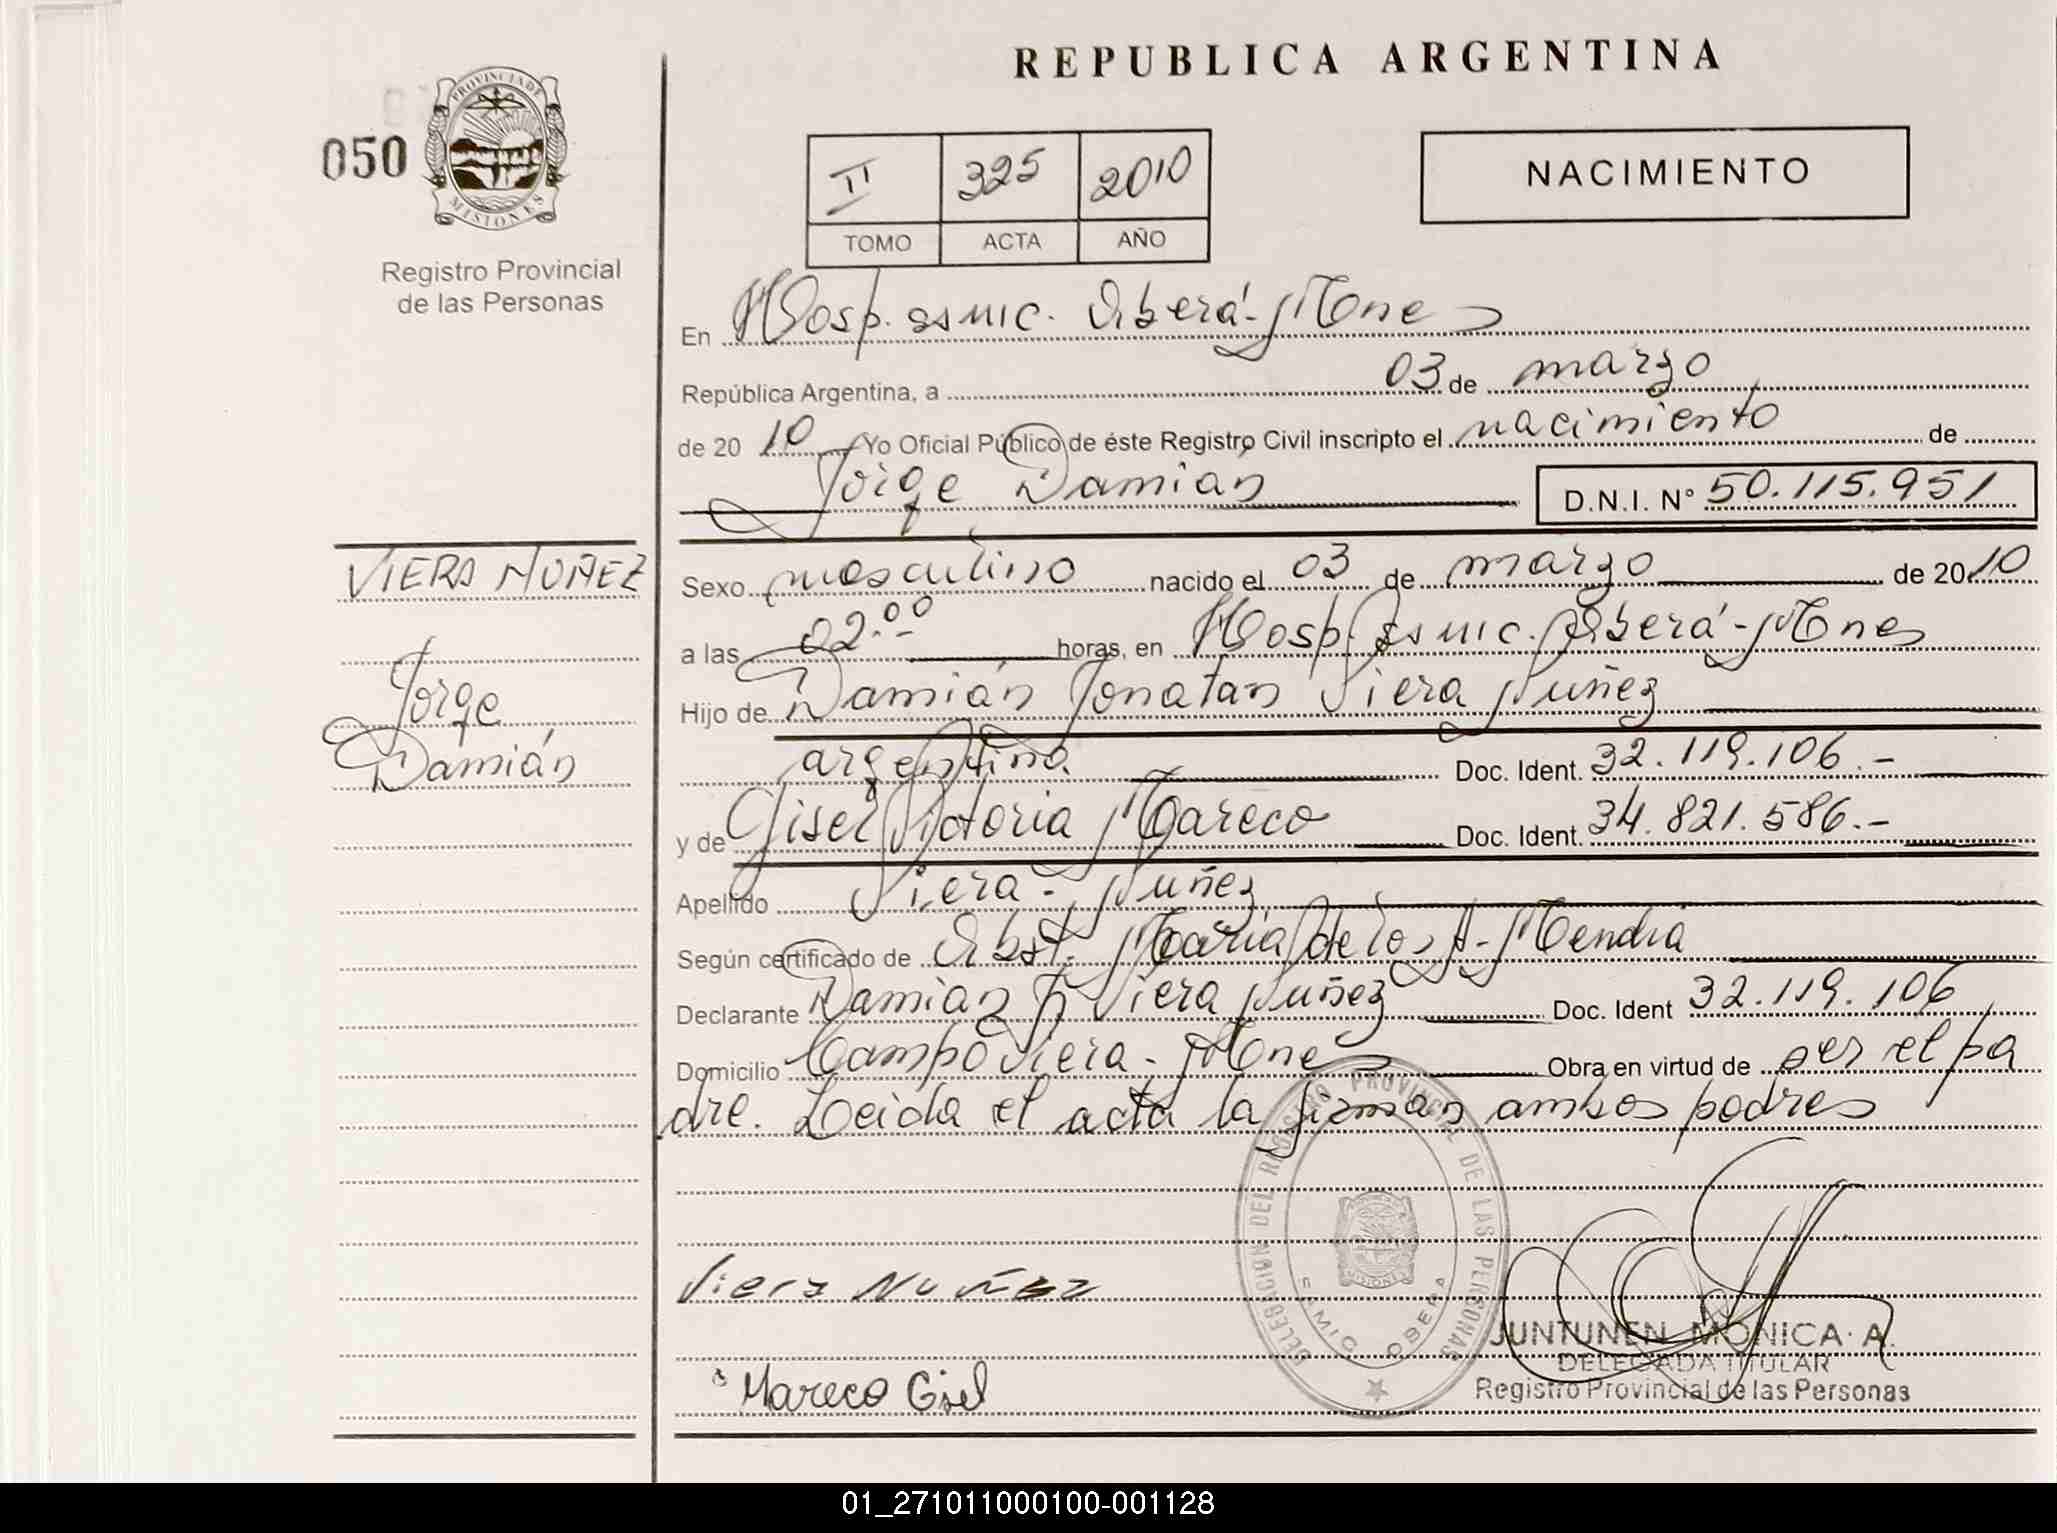 REPUBLICA ARGENTINA
050
PROVINCIA DE
MISIONES
Registro Provincial
de las Personas
II 325 2010
TOMO ACTA AÑO
NACIMIENTO
En Hosp. ssmic. Oberá - Mnes
República Argentina, a 03 de marzo
de 2010 Yo Oficial Público de éste Registro Civil inscripto el nacimiento de
Jorge Damián D.N.I. N° 50.115.951
VIERA NUÑEZ
Jorge
Damián
Sexo masculino nacido el 03 de marzo de 2010
a las 02.00 horas, en Hosp. ssmic. Oberá - Mnes
Hijo de Damián Jonatan Viera Nuñez
argentina Doc. Ident. 32.119.106.-
y de Gisel Victoria Mareco Doc. Ident. 34.821.586.-
Apellido Viera - Nuñez
Según certificado de Obst. María de los A. Mendia
Declarante Damián J. Viera Nuñez Doc. Ident 32.119.106
Domicilio Campo Viera - Mnes Obra en virtud de ser el pa
dre. Leida el acta la firman ambos padres
DELEGACION DEL REGISTRO PROVINCIAL DE LAS PERSONAS
MISIONES
SAMIC OBERA
Viera Nuñez
Mareco Gisel
JUNTUNEN MONICA A.
DELEGADA TITULAR
Registro Provincial de las Personas
01_271011000100-001128